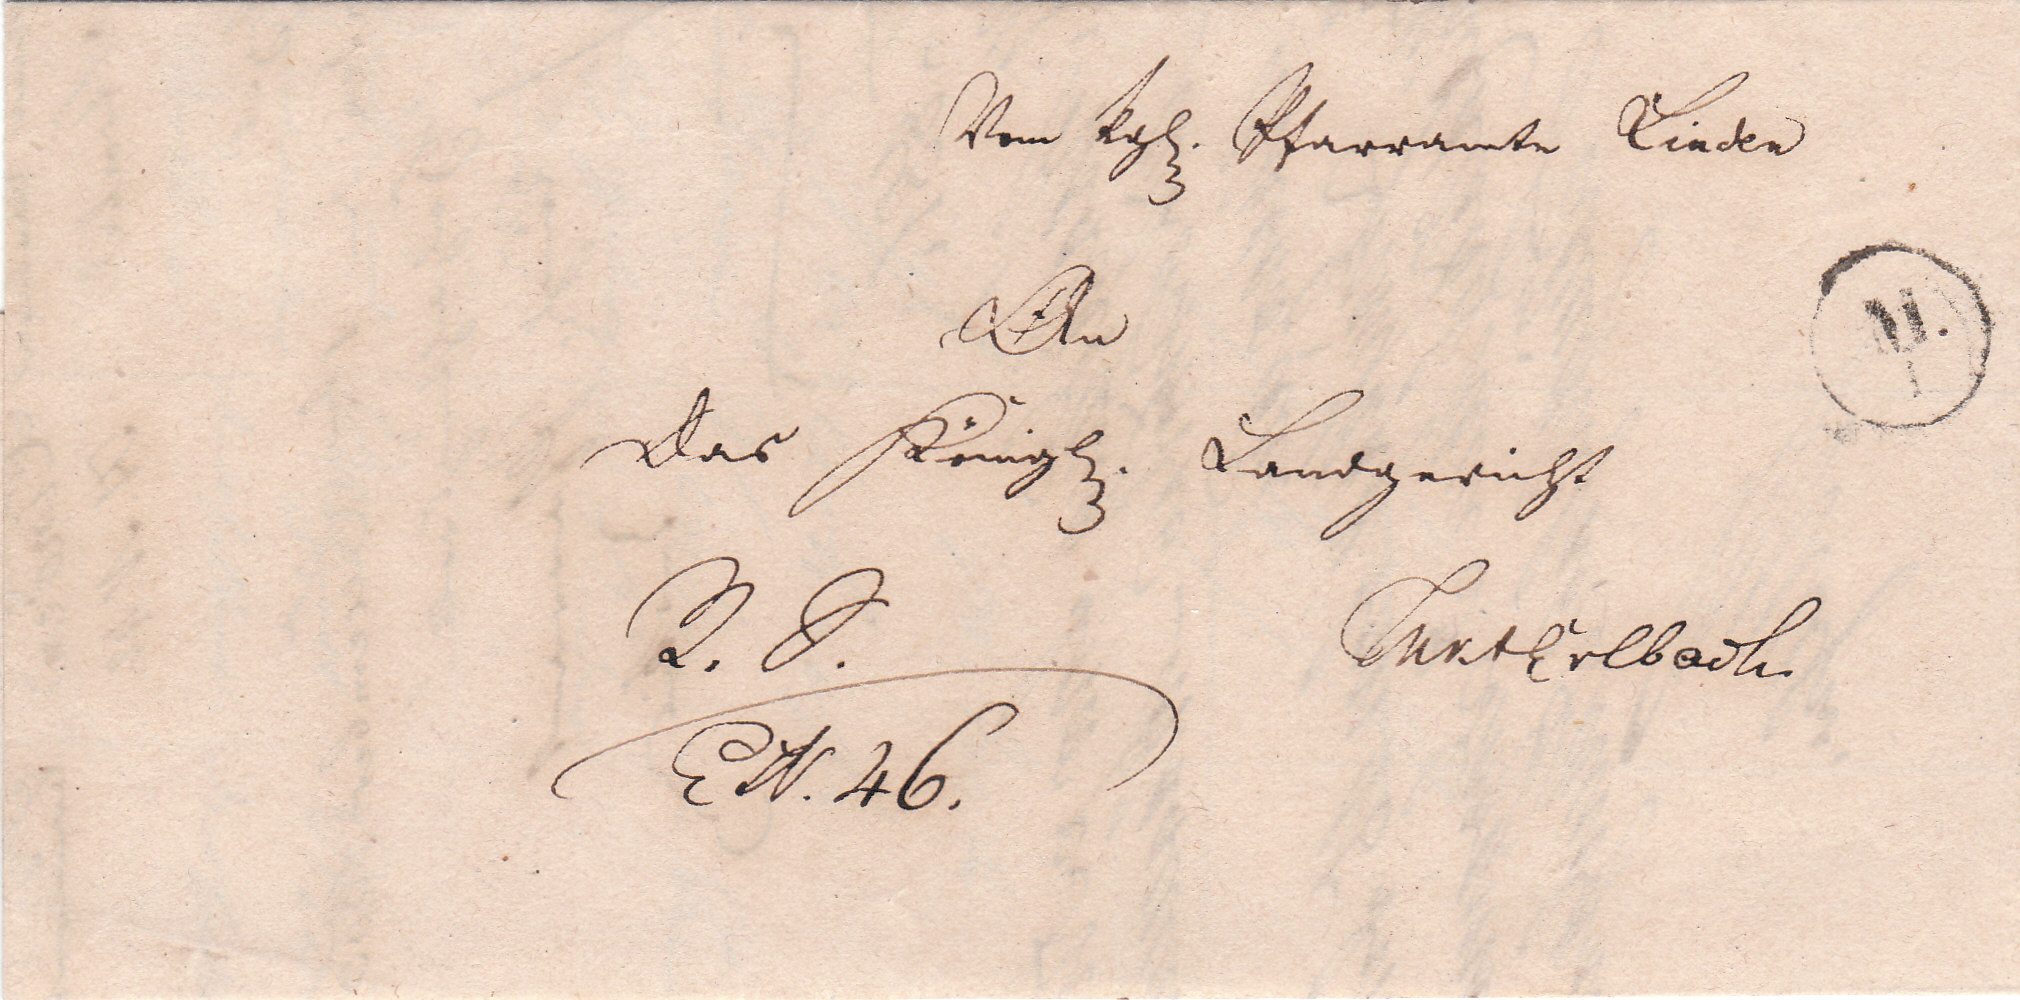 Vom kgl. Pfarramte Linden
An
Das Königl. Landgericht
R. S. Markt Erlbach.
EN. 46.